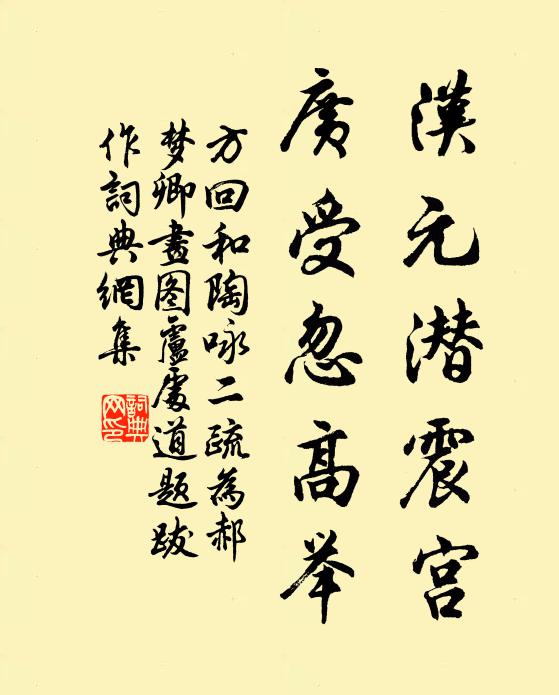 漢元潜震宫
廣受忽高举
方回和陶咏二疏為郝
梦卿畫图盧處道题跋
作詞典網集
詞典網印